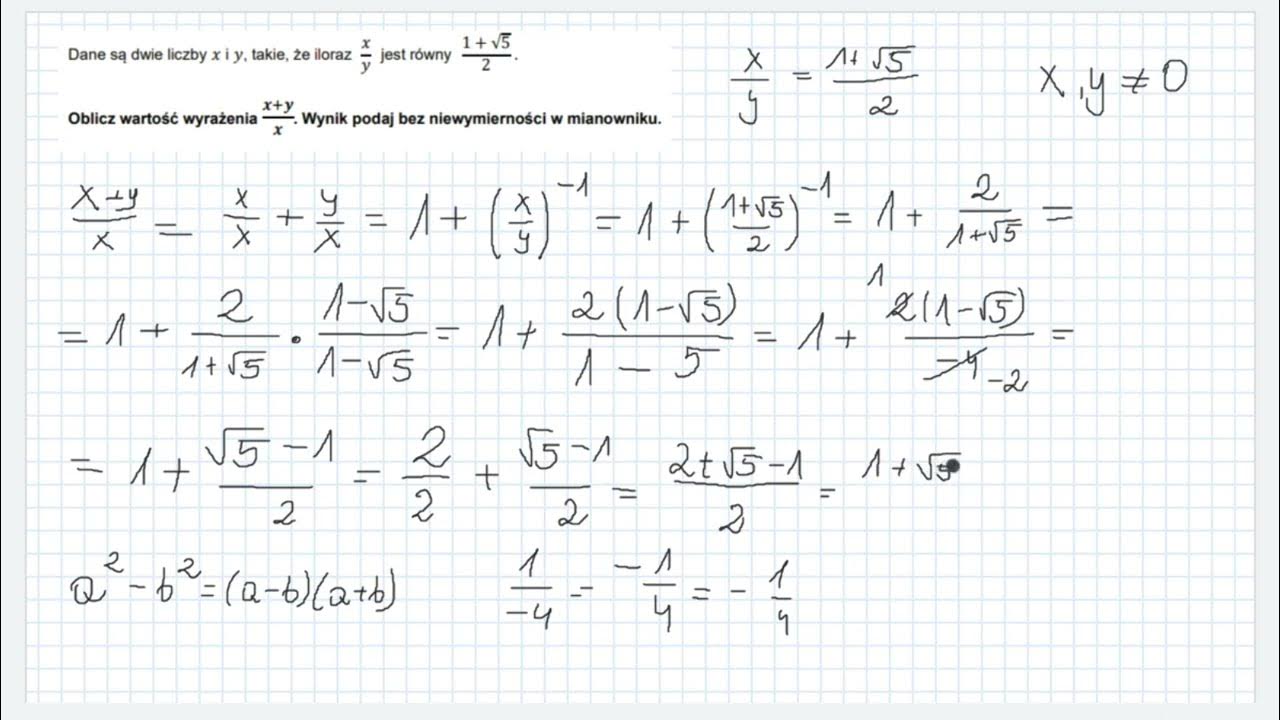 Dane są dwie liczby x i y, takie, że iloraz x/y jest równy (1+√5)/2.
x/y = (1+√5)/2    x, y ≠ 0
Oblicz wartość wyrażenia (x+y)/x. Wynik podaj bez niewymierności w mianowniku.
(x+y)/x = x/x + y/x = 1 + (x/y)^-1 = 1 + ((1+√5)/2)^-1 = 1 + 2/(1+√5) =
= 1 + 2/(1+√5) · (1-√5)/(1-√5) = 1 + 2(1-√5)/(1-5) = 1 + 2(1-√5)/-4 = 1 -2
= 1 + (√5-1)/2 = 2/2 + (√5-1)/2 = (2+√5-1)/2 = 1+√5
a² - b² = (a-b)(a+b)    1/-4 = -1/4 = - 1/4